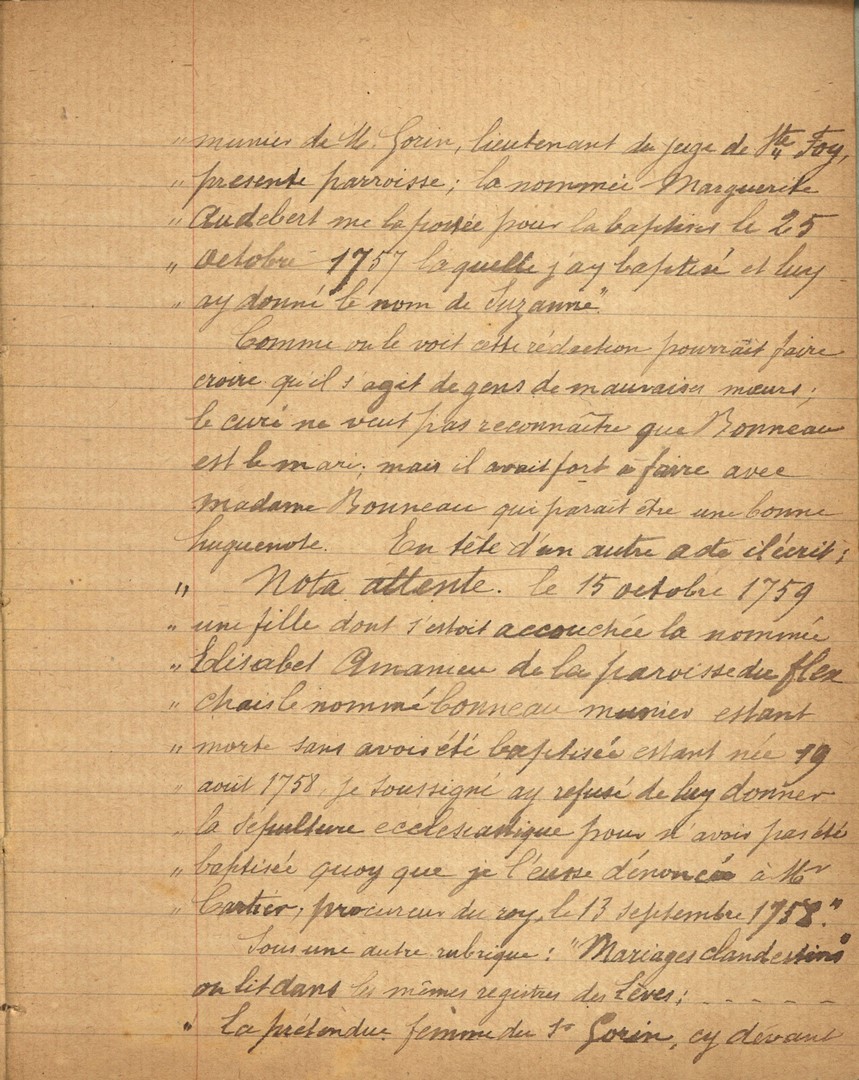 " munier de M. Gorin, lieutenant du juge de Ste Foy,
" presente parroisse; la nommée Marguerite
" Audebert me la portée pour la baptiser le 25
" octobre 1757 laquelle j'ay baptisé et luy
" ay donné le nom de Suzanne"
Comme on le voit cette rédaction pourrait faire
croire qu'il s'agit de gens de mauvaises mœurs;
le curé ne veut pas reconnaître que Bonneau
est le mari; mais il avait fort à faire avec
madame Bonneau qui paraît être une bonne
huguenote. En tête d'un autre acte il écrit;
" Nota attente. le 15 octobre 1759
" une fille dont s'estoit accouchée la nommée
" Elisabet Amanieu de la paroisse du fleix
" chais le nommé bonneau munier estant
" morte sans avoir été baptisée estant née 19
" août 1758, je soussigné ay refusé de luy donner
" la sépulture ecclesiastique pour n'avoir pas été
" baptisée quoy que je l'eusse dénoncée à Mr
" Cartier, procureur du roy, le 13 septembre 1758."
Sous une autre rubrique: "Mariages clandestins"
on lit dans les mêmes registres des Lèves; - - - - -
" La prétendue femme du Sr Gorin, cy devant